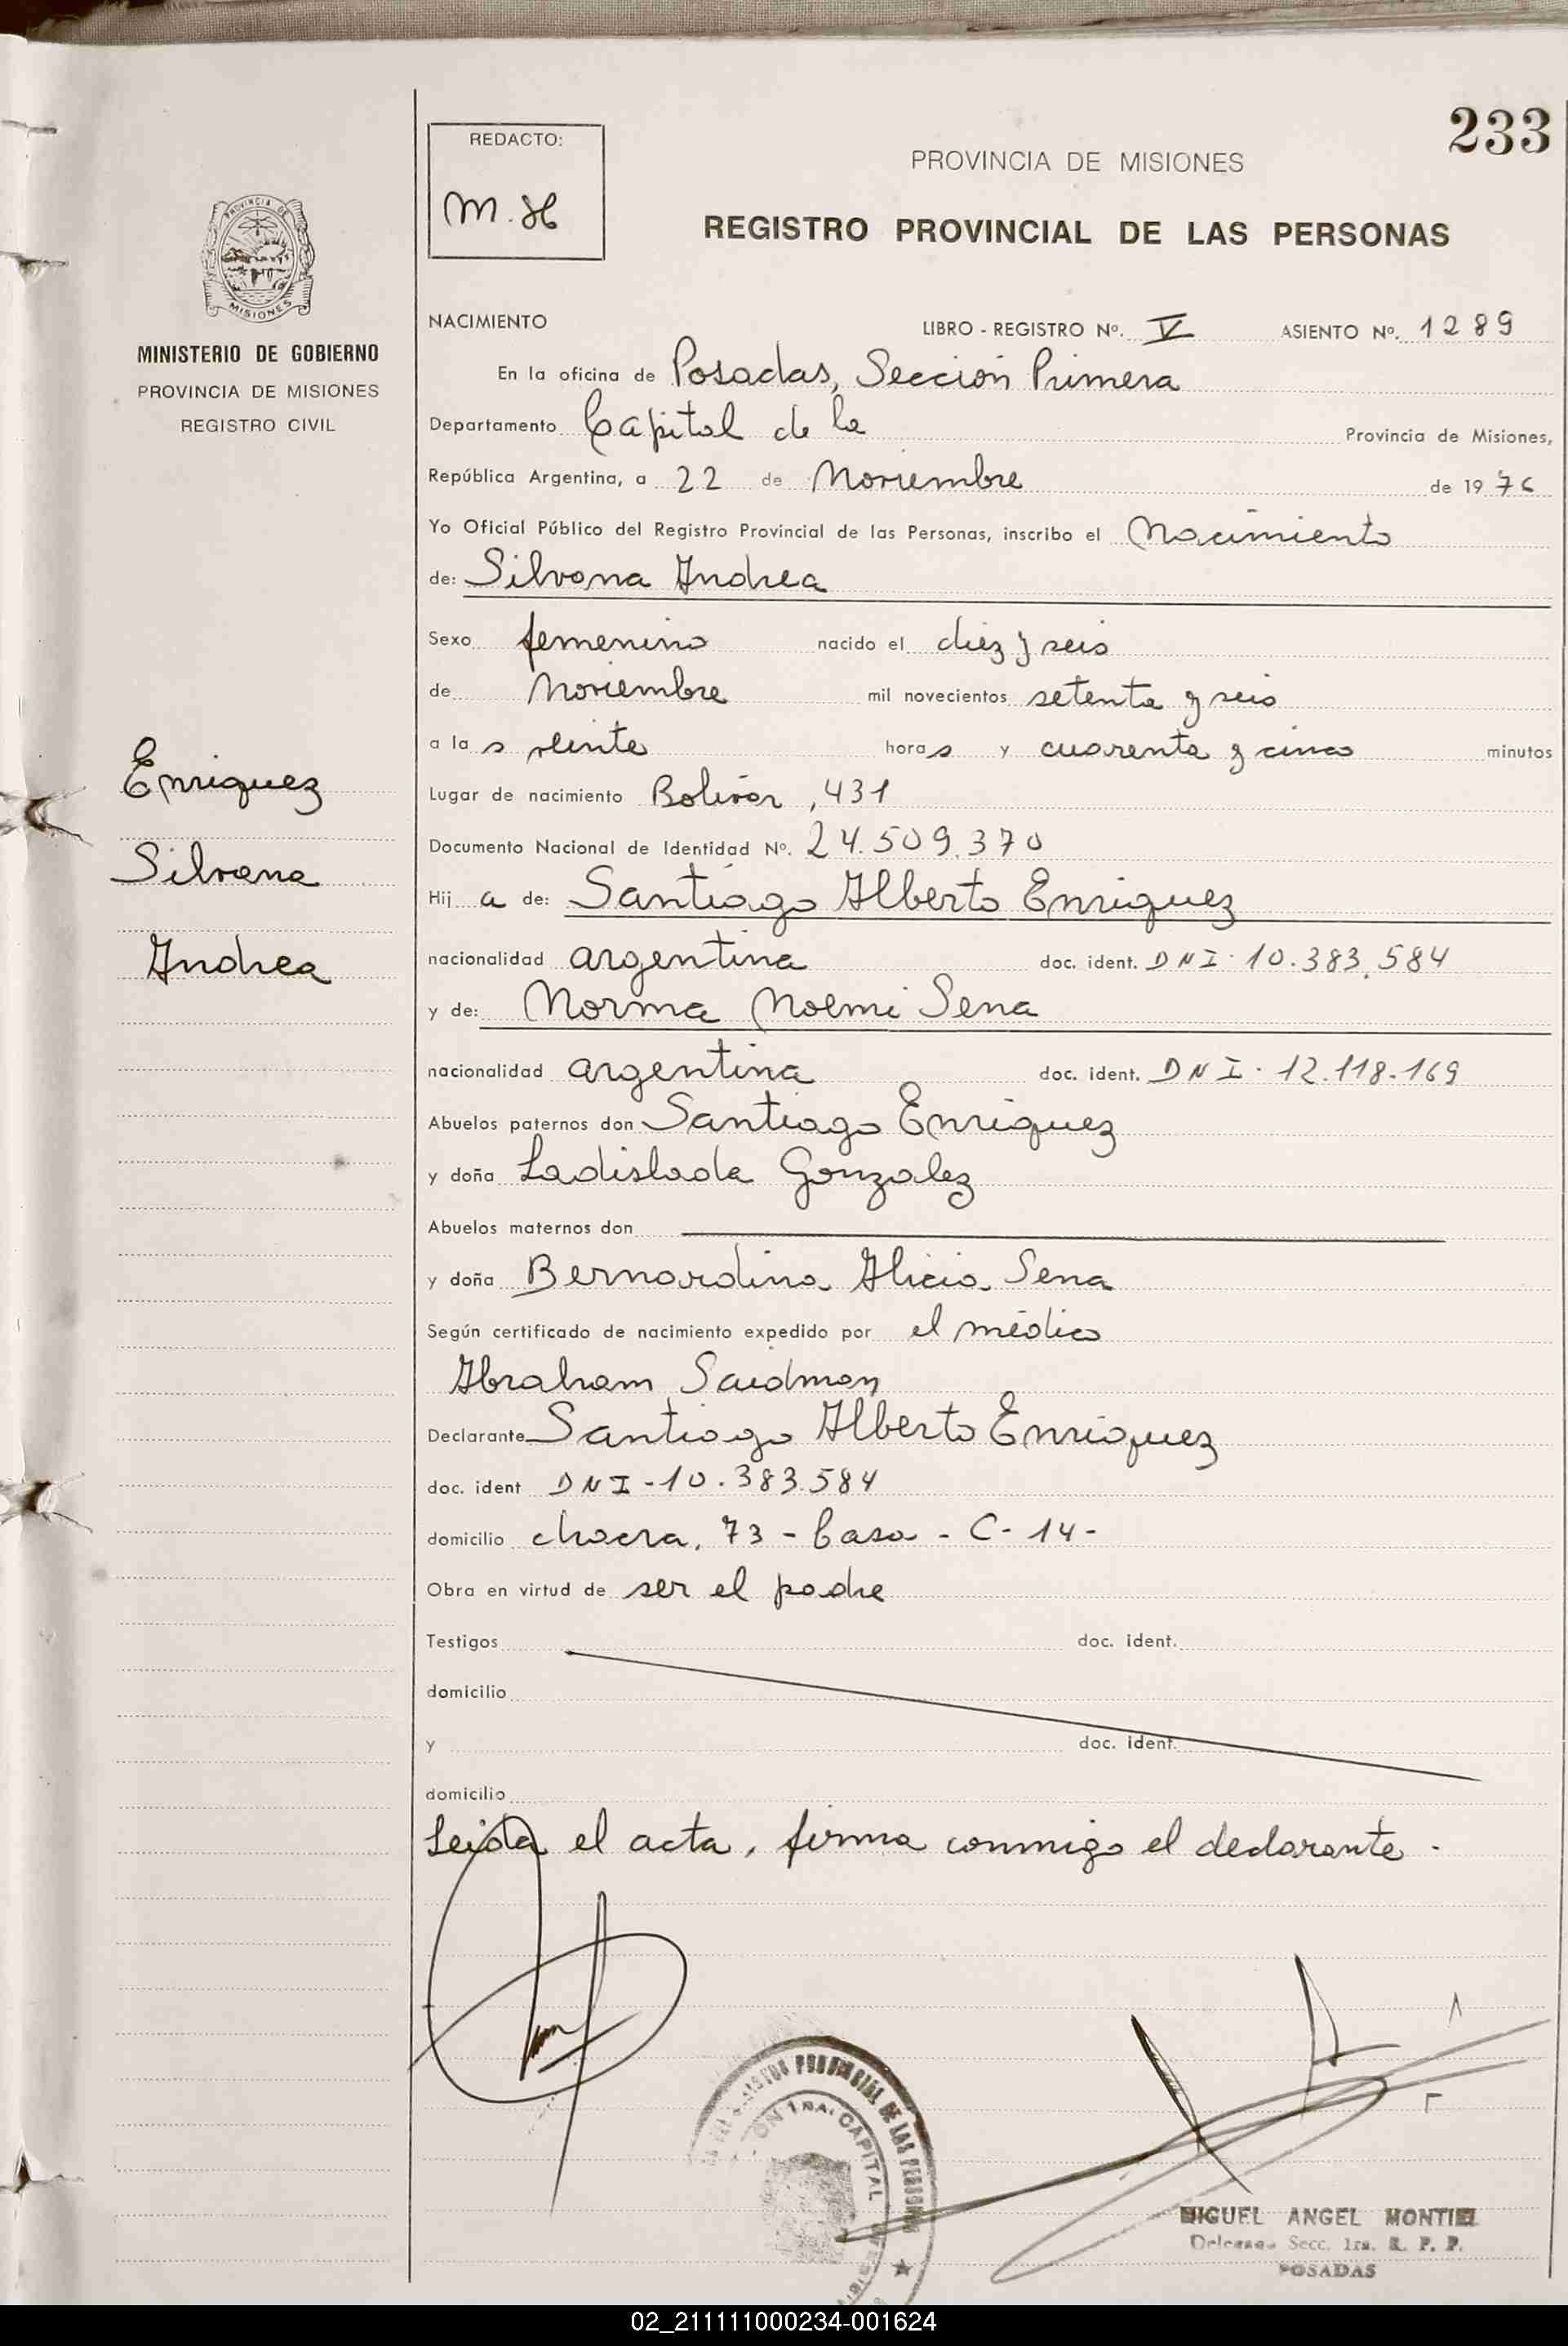 233
REDACTO:
M. H
PROVINCIA DE MISIONES
REGISTRO PROVINCIAL DE LAS PERSONAS
PROVINCIA DE
MISIONES
MINISTERIO DE GOBIERNO
PROVINCIA DE MISIONES
REGISTRO CIVIL
Enriquez
Silvana
Andrea
NACIMIENTO LIBRO - REGISTRO Nº. V ASIENTO Nº. 1289
En la oficina de Posadas, Sección Primera
Departamento Capital de la Provincia de Misiones,
República Argentina, a 22 de Noviembre de 1976
Yo Oficial Público del Registro Provincial de las Personas, inscribo el Nacimiento
de: Silvana Andrea
Sexo femenino nacido el diez y seis
de Noviembre mil novecientos setenta y seis
a las veinte horas y cuarenta y cinco minutos
Lugar de nacimiento Bolívar, 431
Documento Nacional de Identidad Nº. 24.509.370
Hij a de: Santiago Alberto Enriquez
nacionalidad argentina doc. ident. DNI. 10.383.584
y de: Norma Noemi Sena
nacionalidad argentina doc. ident. DNI. 12.118.169
Abuelos paternos don Santiago Enriquez
y doña Ladislada Gonzalez
Abuelos maternos don
y doña Bernardina Alicia Sena
Según certificado de nacimiento expedido por el médico
Abraham Saidman
Declarante Santiago Alberto Enriquez
doc. ident DNI-10.383.584
domicilio chacra, 73 - Casa - C- 14-
Obra en virtud de ser el padre
Testigos doc. ident.
domicilio
y doc. ident.
domicilio
Leida el acta, firma conmigo el declarante.
PROVINCIAL DE LAS PERSONAS
1RA. CAPITAL
MIGUEL ANGEL MONTIEL
Delegado Secc. 1ra. R. P. P.
POSADAS
02_211111000234-001624